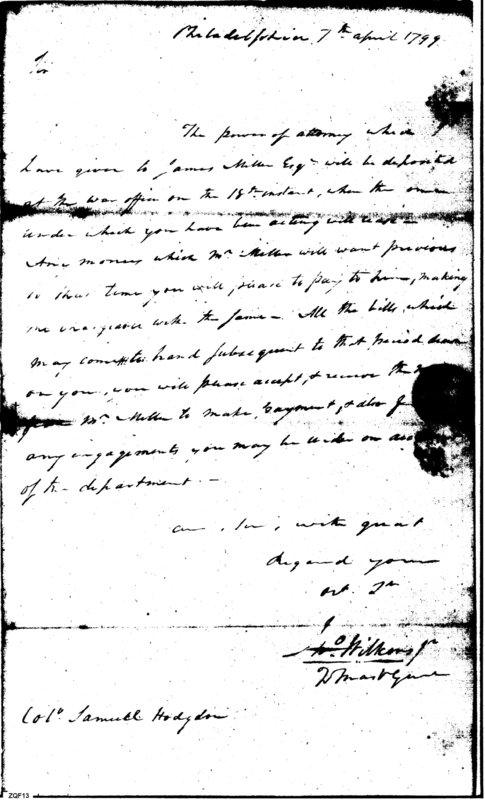 Philadelphia, 7th april 1799
Sir
The power of attorney which
have given to James Miller Esqr will be deposited
at the war office on the 18th instant, when the one
under which you have been acting will cease -
Any moneys which Mr Miller will want previous
to that time you will please to pay to him, making
me chargeable with the same - All the bills, which
may come to hand subsequent to that period drawn
on you, you will please accept, & receive the
from Mr Miller to make payment, & also
any engagements you may be under on
of the department. -
am, Sir, with great
Regard your
obt St
Jno Wilkins Jr
Qr Mast Genl
Colo Samuel Hodgdon
ZQF13